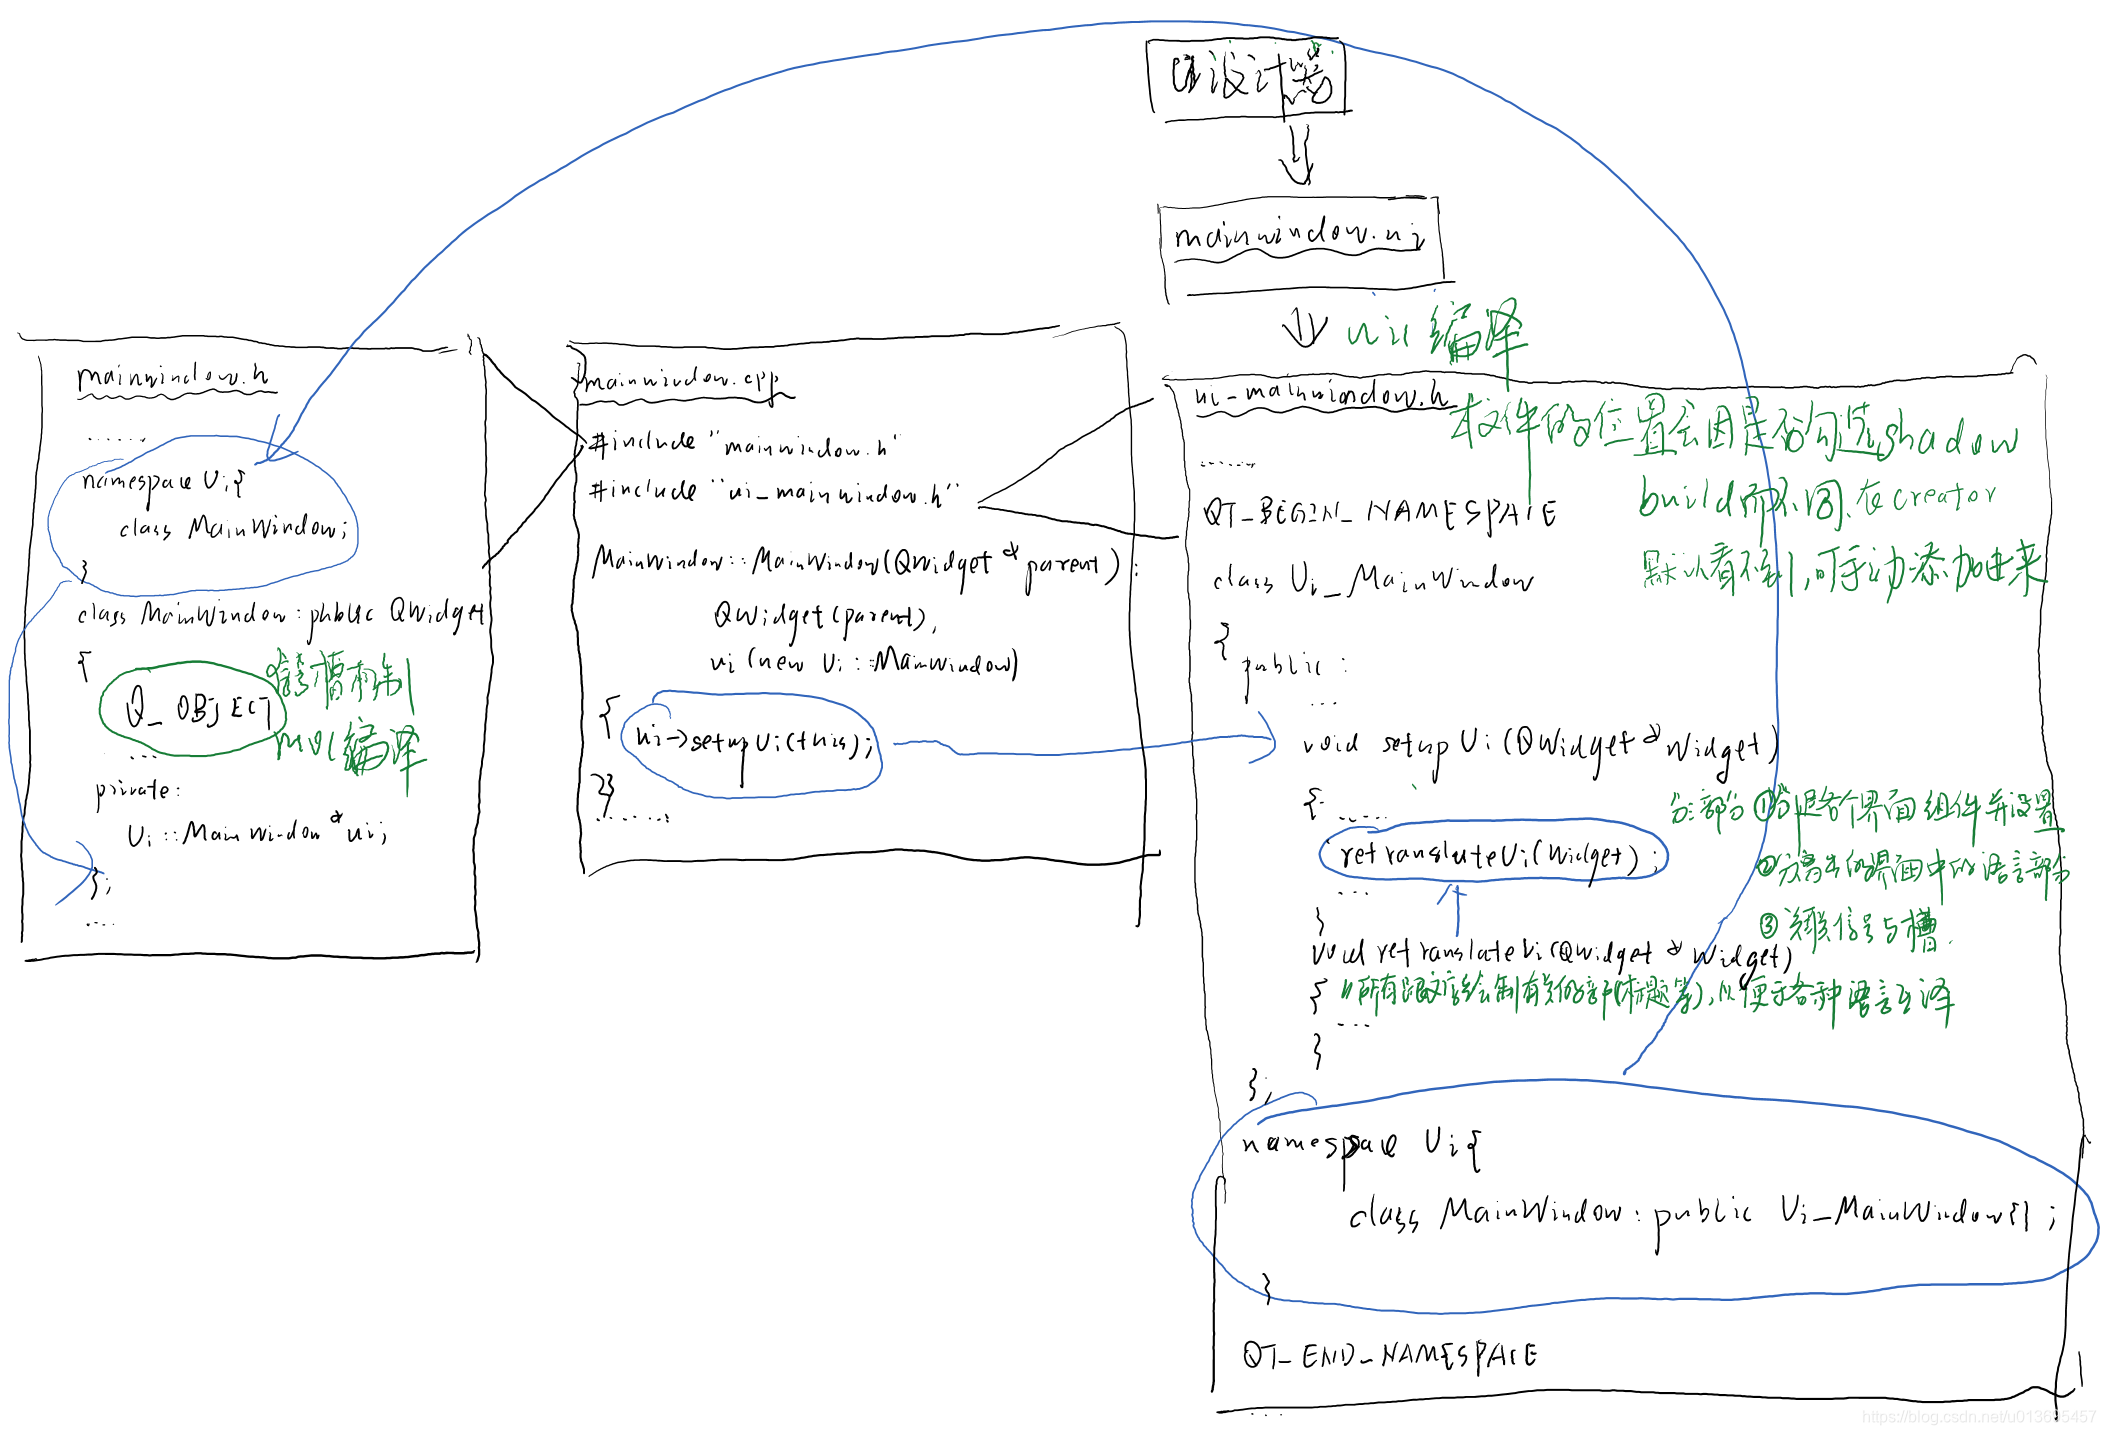 Ui设计器
mainwindow.ui
uic 编译
mainwindow.h
......
namespace Ui{
class MainWindow;
}
class MainWindow:public QWidget
{
Q_OBJECT
信号槽机制
moc编译
...
private:
Ui::MainWindow *ui;
};
....
mainwindow.cpp
#include "mainwindow.h"
#include "ui_mainwindow.h"
MainWindow::MainWindow(QWidget * parent):
QWidget(parent),
ui(new Ui::MainWindow)
{
ui->setupUi(this);
}
.......
ui-mainwindow.h
本文件的位置会因是否勾选shadow
build而不同.在creator
默认看不到,可手动添加进来
......
QT_BEGIN_NAMESPACE
class Ui_MainWindow
{
public:
...
void setupUi(QWidget *Widget)
{
......
retranslateUi(Widget);
...
}
分三部分①创建各个界面组件并设置
②分离出的界面中的语言部分
③关联信号与槽.
void retranslateUi(QWidget *Widget)
{ //所有跟文字绘制有关的部分(标题等),以便于各种语言互译
...
}
};
namespace Ui{
class MainWindow:public Ui_MainWindow{};
}
QT_END_NAMESPACE
...
https://blog.csdn.net/u013695457